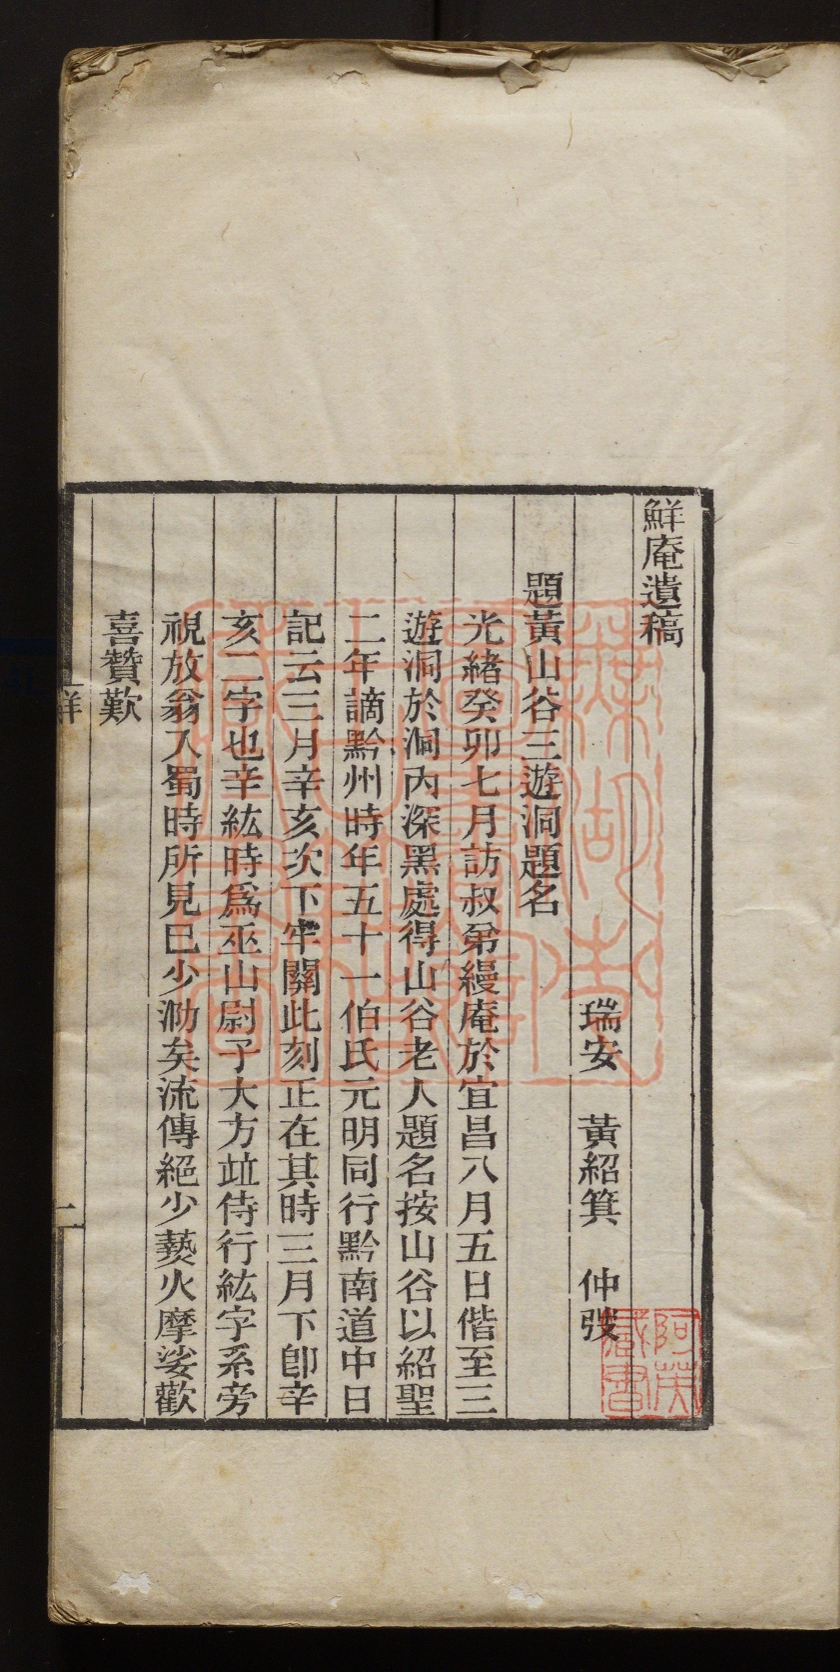 鮮庵遺稿
瑞安　黃紹箕　仲弢
題黃山谷三遊洞題名
光緒癸卯七月訪叔弟縵庵於宜昌八月五日偕至三
遊洞於洞內深黑處得山谷老人題名按山谷以紹聖
二年謫黔州時年五十一伯氏元明同行黔南道中日
記云三月辛亥次下牢關此刻正在其時三月下卽辛
亥二字也辛紘時爲巫山尉子大方竝侍行紘字系旁
視放翁入蜀時所見已少泐矣流傳絕少爇火摩娑歡
喜贊歎
二
阿英
藏書